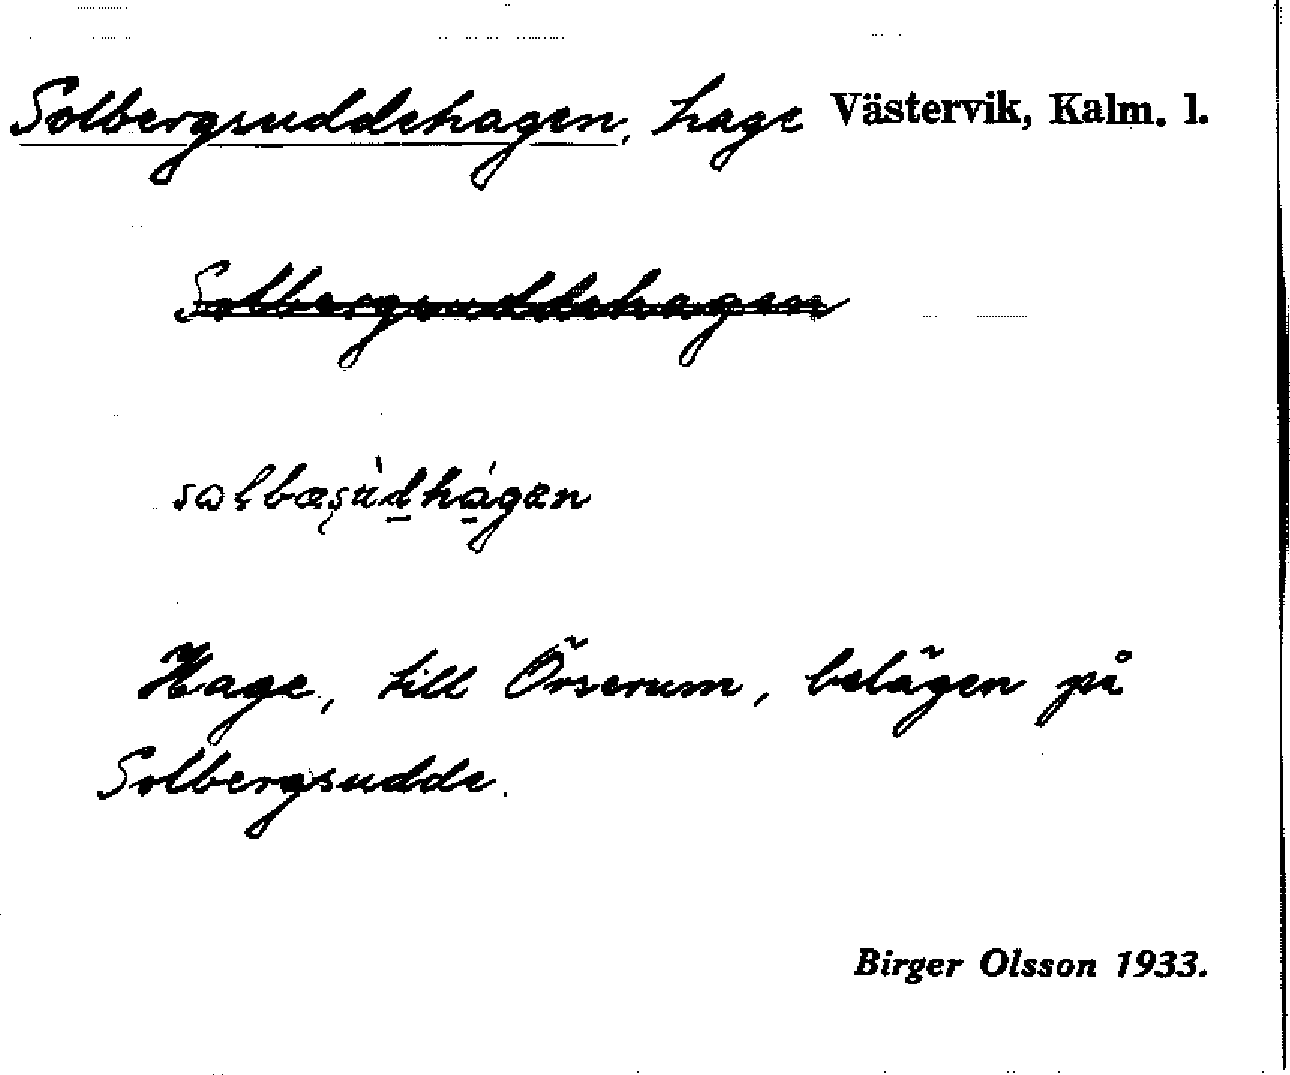 Solbergsuddehagen, hage Västervik, Kalm. l.
Solbergsuddehagen
Hage, till Örserum, belägen på
Solbergsudde.
Birger Olsson 1933.